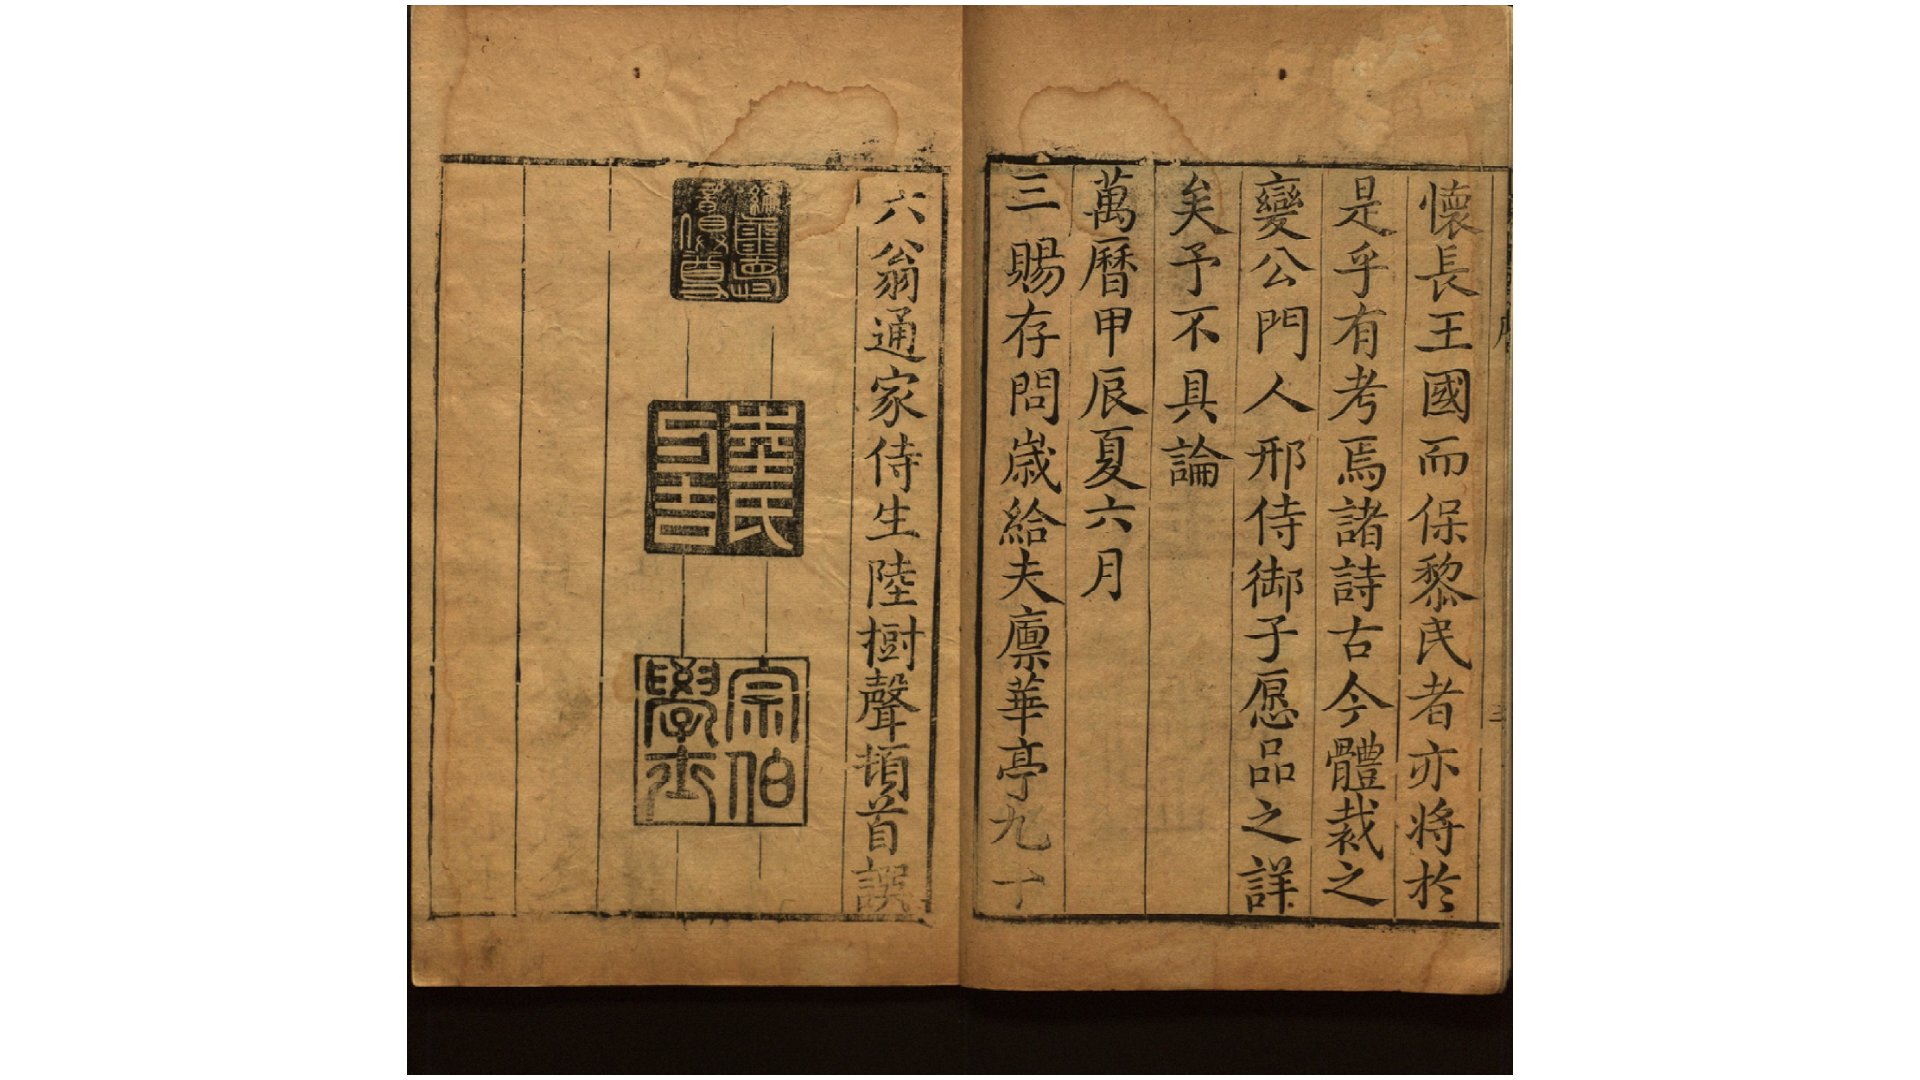 懷長王國而保黎民者亦將於
是乎有考焉諸詩古今體裁之
變公門人邢侍御子愿品之詳
矣予不具論
萬曆甲辰夏六月
三賜存問歲給夫廩華亭九十
六翁通家侍生陸樹聲頓首譔
陸氏与吉
宗伯學士